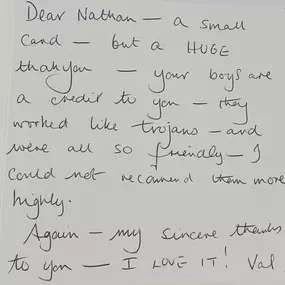 Dear Nathan — a small
Card — but a HUGE
thankyou — your boys are
a credit to you — they
worked like trojans — and
were all so friendly — I
could not recomend them more
highly.
Again — my sincere thanks
to you — I LOVE IT! Val